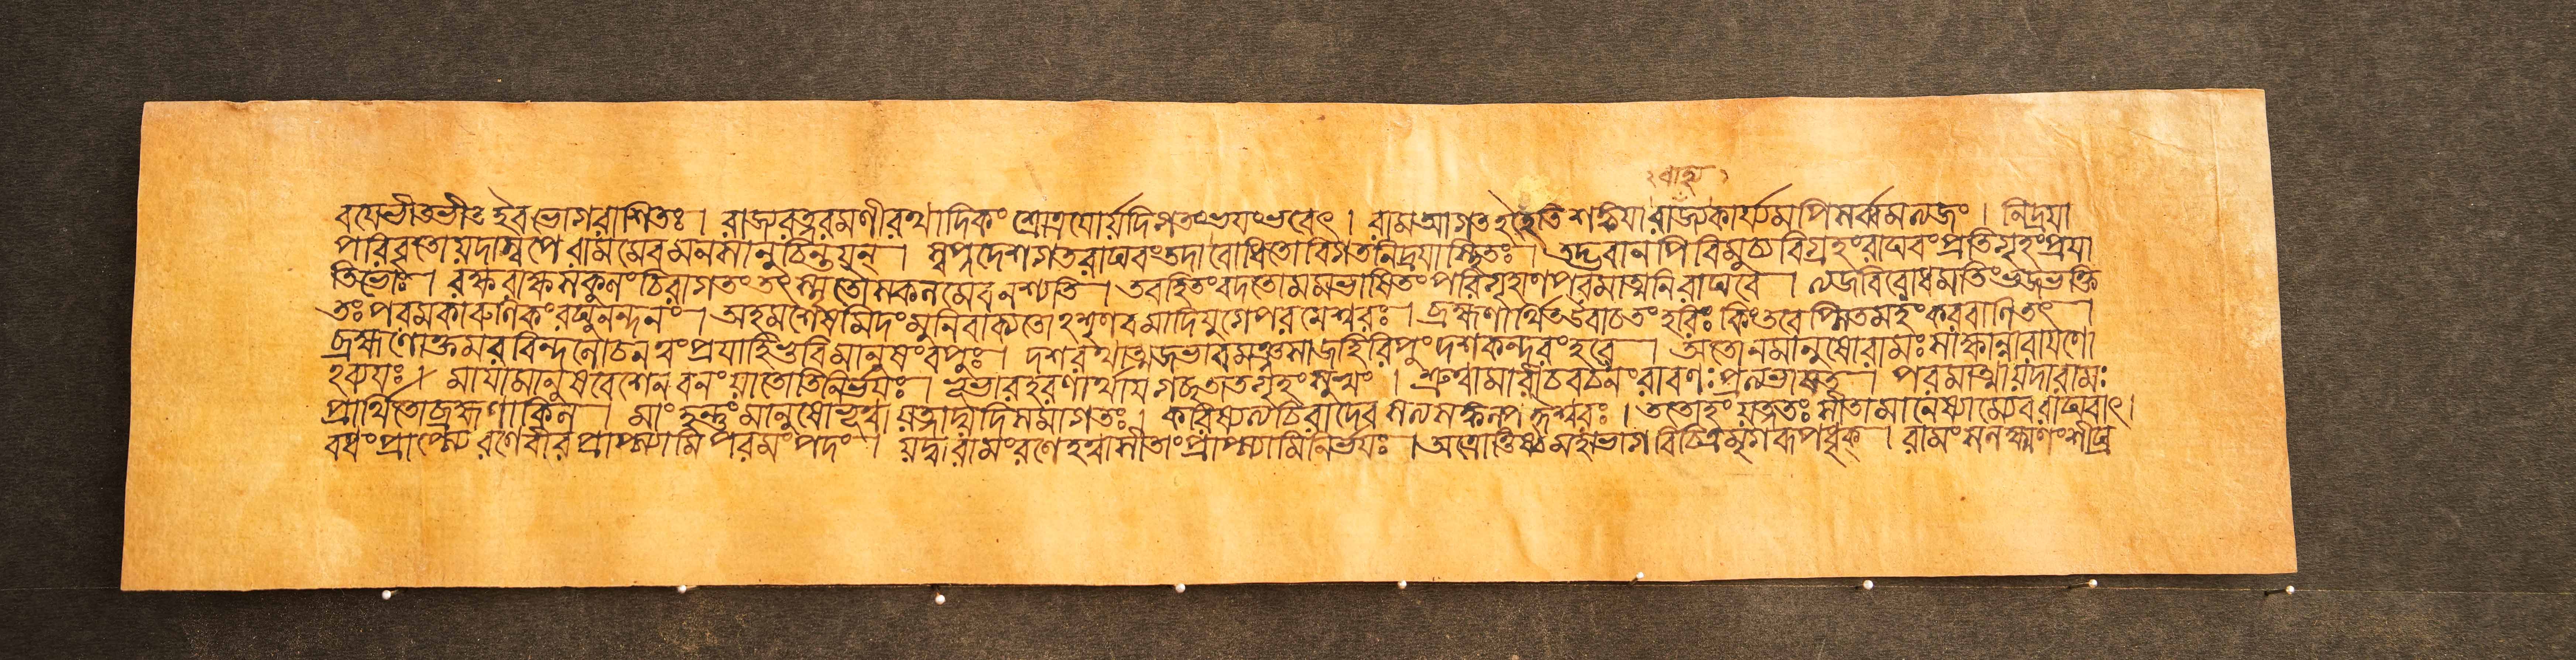 বাহ্য
বয়েভীতভীতইবভোগরাশিতঃ । রাজ্যরত্নরমণীরথাদিকং শ্রোত্রয়োর্যদিগতংভয়ংভবেৎ । রামআগতইহেতিশঙ্কয়া রাজ্যকার্য্যমপিসর্ব্বমত্যজং । নিদ্রয়া
পরিবৃতোয়দাস্বপে রামমেবমনসানুচিন্তয়ন্ । স্বপ্নদেশগতরাঘবংতদা বোধিতোবিগতনিদ্রয়াস্থিতঃ । তদ্ভবানপি বিমুচ্যবিগ্রহংরাঘবংপ্রতিগৃহংপ্রয়া
তিভোঃ । রক্ষরাক্ষসকুলংচিরাগতংতৎস্মৃতৌসকলমেবনশ্যতি । তবহিতংবদতোমমভাষিতংপরিগৃহাণপরমাত্মনিরাঘবে । ত্যজবিরোধমতিংভজভক্তি
তঃপরমকারুণিকংরঘুনন্দনং । অহমশেষমিদংমুনিবাক্যতোঽশৃণবমাদিযুগেপরমেশ্বরঃ । ব্রহ্মণার্থিতউবাচতংহরিঃ কিংতবেপ্সিতমহংকরবাণিতৎ ।
ব্রহ্মণোক্তমরবিন্দলোচনত্বংপ্রয়াহিভুবিমানুষংবপুঃ । দশরথাত্মজভাবমঞ্জসাজহিরিপুংদশকন্দরংহরে । অতোনমানুষোরামঃসাক্ষান্নারায়ণো
ঽব্যয়ঃ । মায়ামানুষবেশেনবনংয়াতোতিনির্ভয়ঃ । ভূভারহরণার্থায়গচ্ছতাতগৃহংসুখং । শ্রুত্বামারীচবচনংরাবণঃপ্রত্যভাষত । পরমাত্মায়দারামঃ
প্রার্থিতোব্রহ্মণাকিল । মাংহন্তুংমানুষোভূত্বা য়ত্নাদিহসমাগতঃ । করিষ্যত্যচিরাদেব সত্যসঙ্কল্পঈশ্বরঃ । ততোহংয়ত্নতঃসীতামানেষ্যাম্যেবরাঘবাৎ ।
বধংপ্রাপ্তে রণেবীরপ্রাপ্স্যামিপরমংপদং । য়দ্বারামংরণেহত্বাসীতাংপ্রাপ্স্যামিনির্ভয়ঃ । অত্রোত্তিষ্ঠমহাভাগবিচিত্রমৃগরূপধৃক্ । রামংসলক্ষ্মণংশীঘ্র